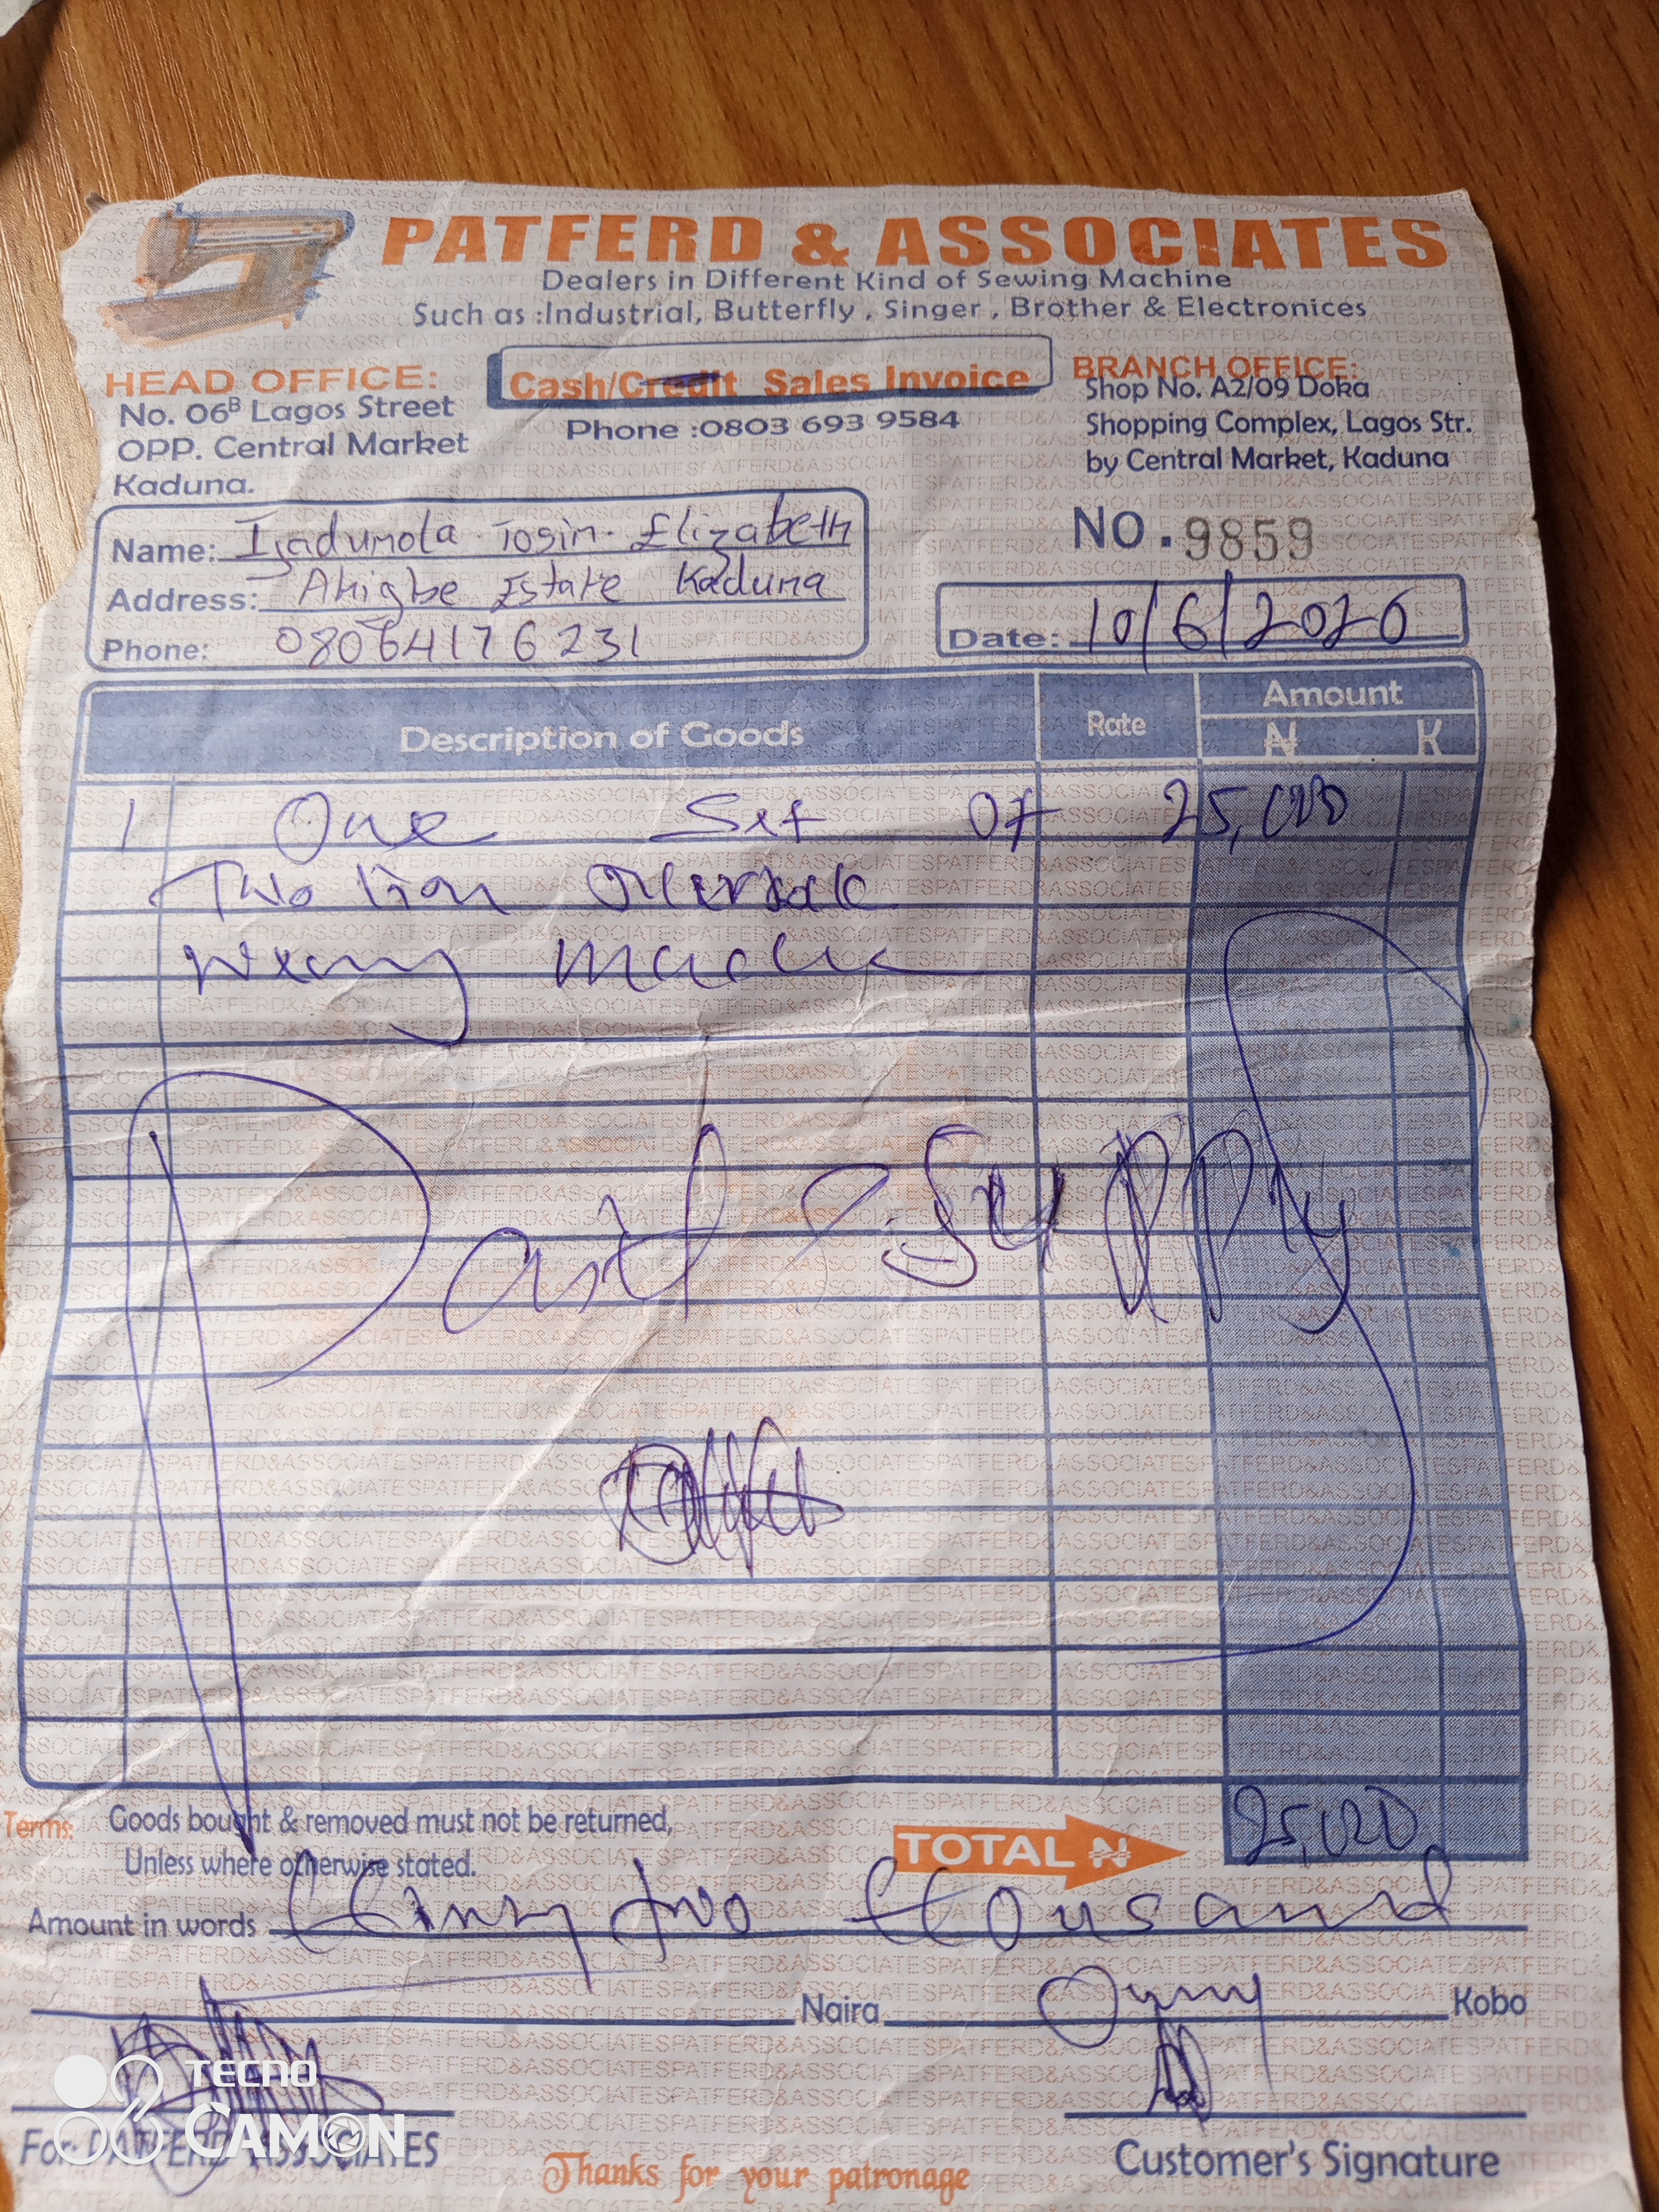 PATFERD & ASSOCIATES
Dealers in Different Kind of Sewing Machine
Such as :Industrial, Butterfly , Singer , Brother & Electronices
HEAD OFFICE:
No. 06B Lagos Street
OPP. Central Market
Kaduna.
Cash/Credit Sales Invoice
Phone :0803 693 9584
BRANCH OFFICE:
Shop No. A2/09 Doka
Shopping Complex, Lagos Str.
by Central Market, Kaduna
Name: Tosin Elizabeth
Address: Estate Kaduna
Phone: 08064176231
NO. 9859
Date: 10/6/2026
Description of Goods Rate Amount
₦ K
1 One Set Of 25,000
Two lion
Part Supply
Terms: Goods bought & removed must not be returned,
Unless where otherwise stated.
TOTAL ₦ 25,000
Amount in words two thousand
Naira Only Kobo
For: PATFERD ASSOCIATES
Customer's Signature
Thanks for your patronage
TECNO
CAMON